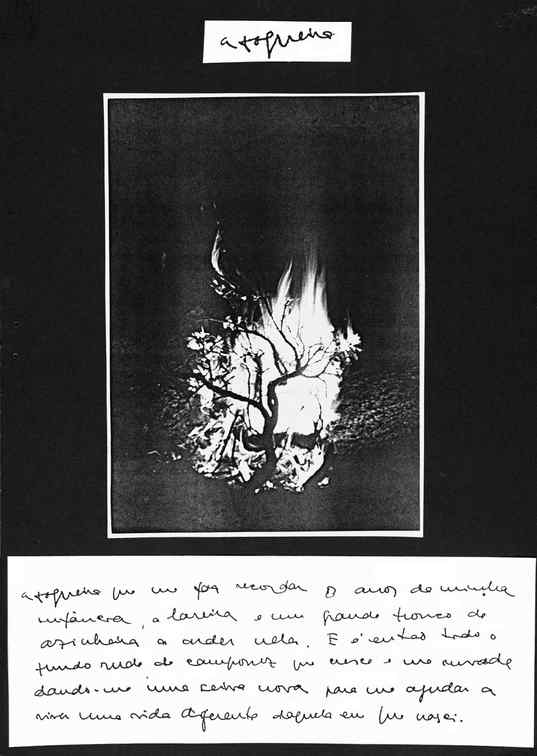 a fogueira
a fogueira que me faz recordar os anos da minha
infância, a lareira e um grande tronco de
azinheira a arder nela. E é então todo o
fundo rude de camponez que cresce e me invade
dando-me uma seiva nova para me ajudar a
viver uma vida diferente daquela em que nasci.